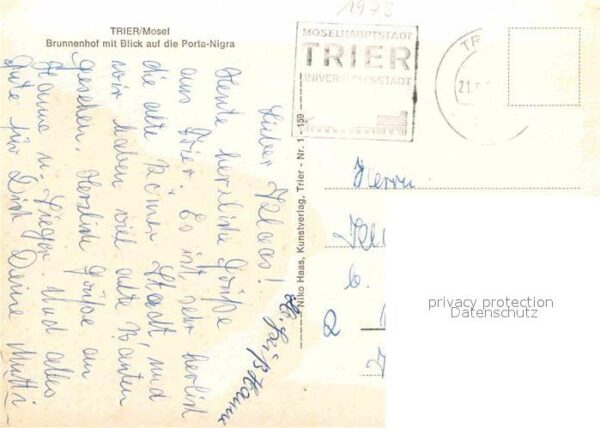 1973
TRIER/Mosel
Brunnenhof mit Blick auf die Porta-Nigra
MOSELHAUPTSTADT
TRIER
UNIVERSITÄTSSTADT
TR
21.
Lieber Klaus!
Heute herzliche Grüße
aus Trier. Es ist sehr herrlich
die alte Römer Stadt, und
wir haben viel alte Bauten
gesehen. Herzliche Grüße an
Hanne u. Jürgen. Und alles
Gute für Dich Deine Mutti
Niko Haas, Kunstverlag, Trier - Nr. 1 - 159
Herrn
Kl
6.
2 1
privacy protection
Datenschutz